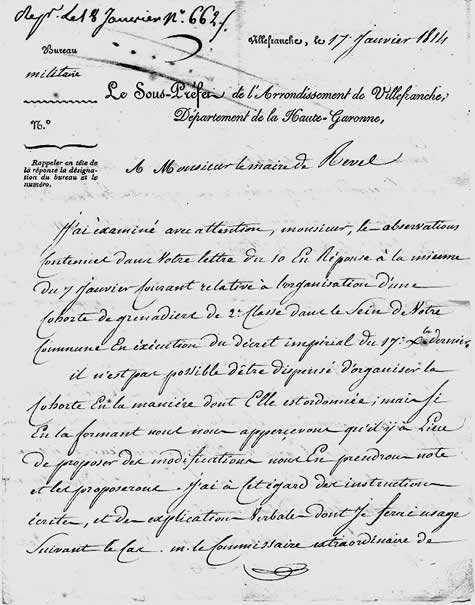 Rép. Le 18 Janvier N.º 662
Villefranche, le 17 Janvier 1814
Bureau
militaire
Le Sous-Préfet de l'Arrondissement de Villefranche,
Département de la Haute-Garonne,
N.º
Rappeler en tête de
la réponse la désigna-
tion du bureau et le
numéro.
A Monsieur le maire de Revel
J'ai éxaminé avec attention, monsieur, les observations
Contenues dans Votre lettre du 10 En Réponse à la mienne
du 7 janvier Courant relative à l'organisation d'une
Cohorte de grenadiers de 2.e Classe dans le Sein de Votre
Commune En éxécution du décret impérial du 17. X.bre dernier
il n'est pas possible d'être dispensé d'organiser la
Cohorte En la manière dont Elle est ordonnée; mais si
En la formant nous nous appercevons qu'il y à Lieu
de proposer des modifications nous En prendrons note
et les proposerons. J'ai à Cet égard des instructions
écrites, et des explications Verbales dont Je ferai usage
Suivant le Cas. m. le Commissaire extraordinaire de